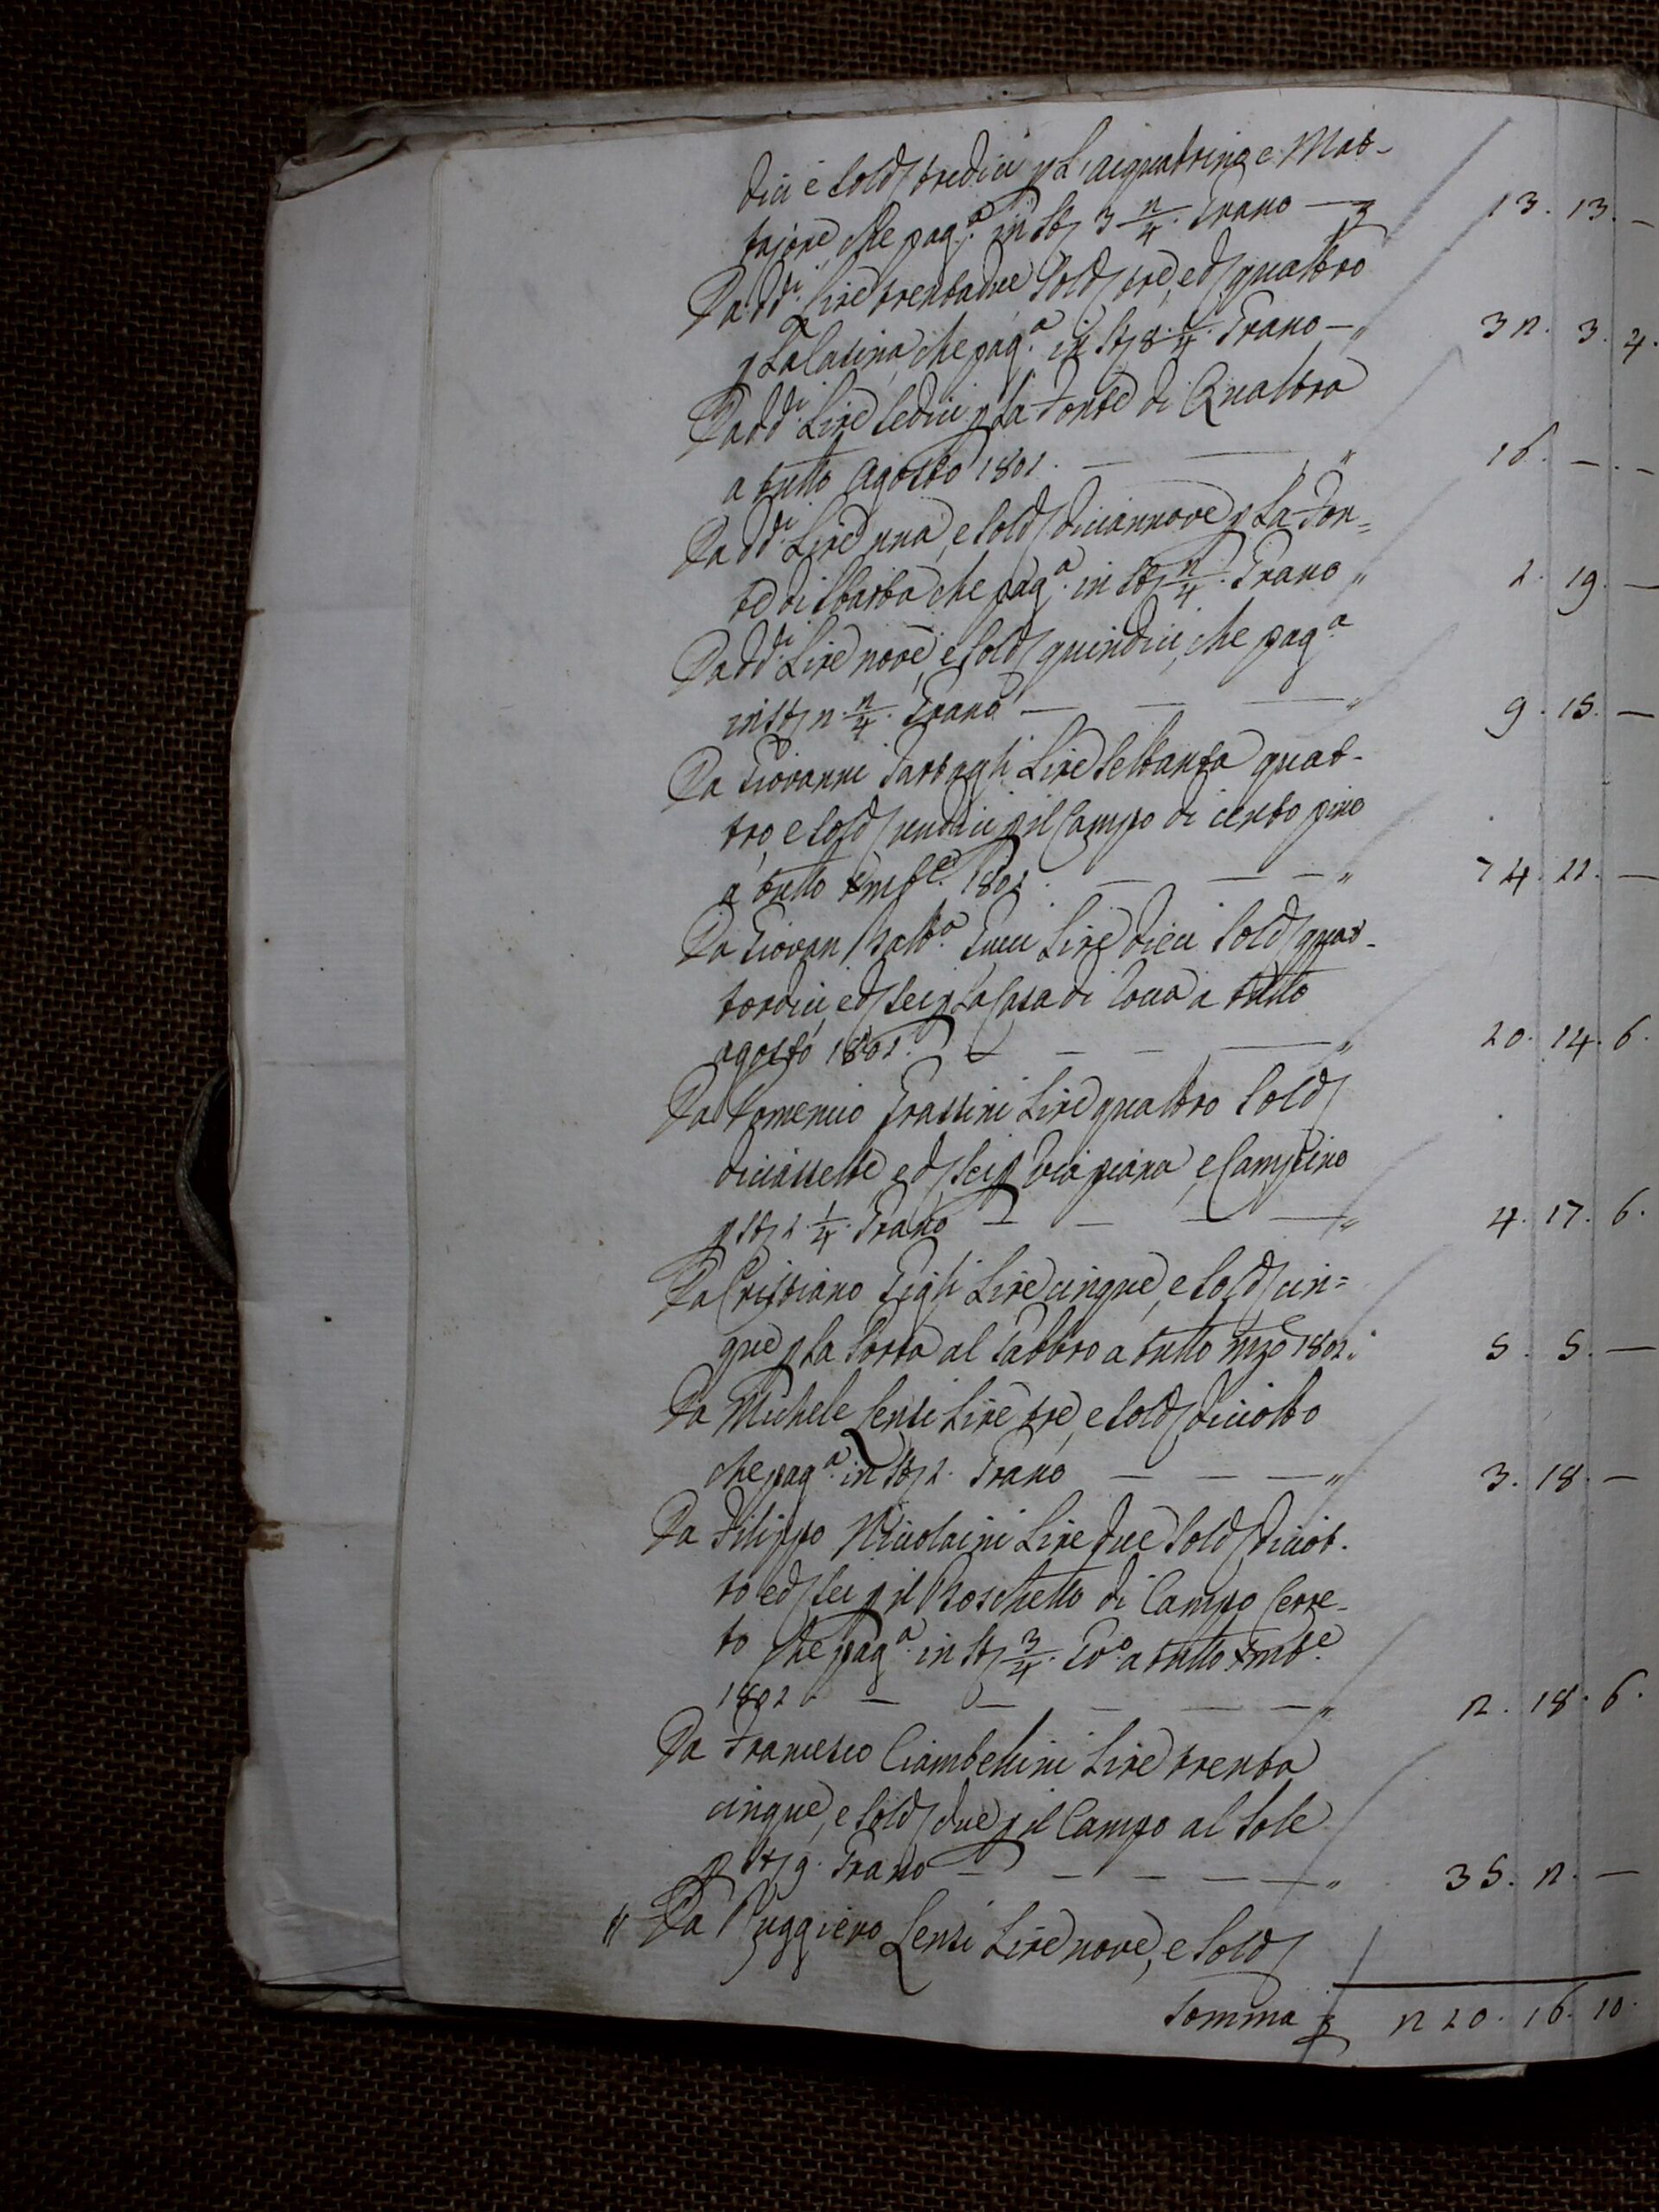 dici e Sold/ tredici p L'acquatrina e Mat-
tajone che pag.ª in St/ 3 2/4. Grano — £ 13. 13. —
Da dd.i Lire trentadue Sold/ tre, e d/ quattro
p La Casina che pag.ª in St/ 8. 1/4. Grano — „ 32. 3. 4.
Da dd.i Lire Sedici p La Fonte di Quattro
a tutto Agosto 1801. — — „ 16. —. —
Da dd.i Lire una, e Sold/ diciannove p La Fon=
te di che pag.ª in St/ 2/4. Grano „ 1. 19. —
Da dd.i Lire nove, e Sold/ quindici, che pag.ª
in St/ 2. 2/4. Grano — — — „ 9. 15. —
Da Giovanni Lire Settanta quat-
tro, e Sold/ undici p il Campo di cento pino
a tutto Xmbe. 1801. — — — „ 74. 11. —
Da Giovan Batt.ª Lire dieci Sold/ quat-
tordici, e d/ sei p La Casa di a tutto
agosto 1801. — — — — „ 10. 14. 6.
Da Domenico Grassini Lire quattro Sold/
diciassette e d/ sei p Via piana, e Campino
p St/ 1. 1/4. Grano — — — — „ 4. 17. 6.
Da Cristiano Gigli Lire cinque, e Sold/ cin=
que p La Porta al Fabbro a tutto mzo 1802. „ 5. 5. —
Da Michele Censi Lire tre, e Sold/ diciotto
che pag.ª in St/ 1. Grano — — — „ 3. 18. —
Da Filippo Nicolaini Lire due Sold/ diciot-
to e d/ sei p il Boschetto di Campo Cerre-
to che pag.ª in St/ 3/4. Gr.o a tutto Xmbe.
1802 — — — — — „ 2. 18. 6.
Da Francesco Ciambellini Lire trenta
cinque, e Sold/ due p il Campo al Sole
p St/ 9. Grano — — — — — „ 35. 2. —
„ Da Ruggiero Censi Lire nove, e Sold/
Somma £ 210. 16. 10.